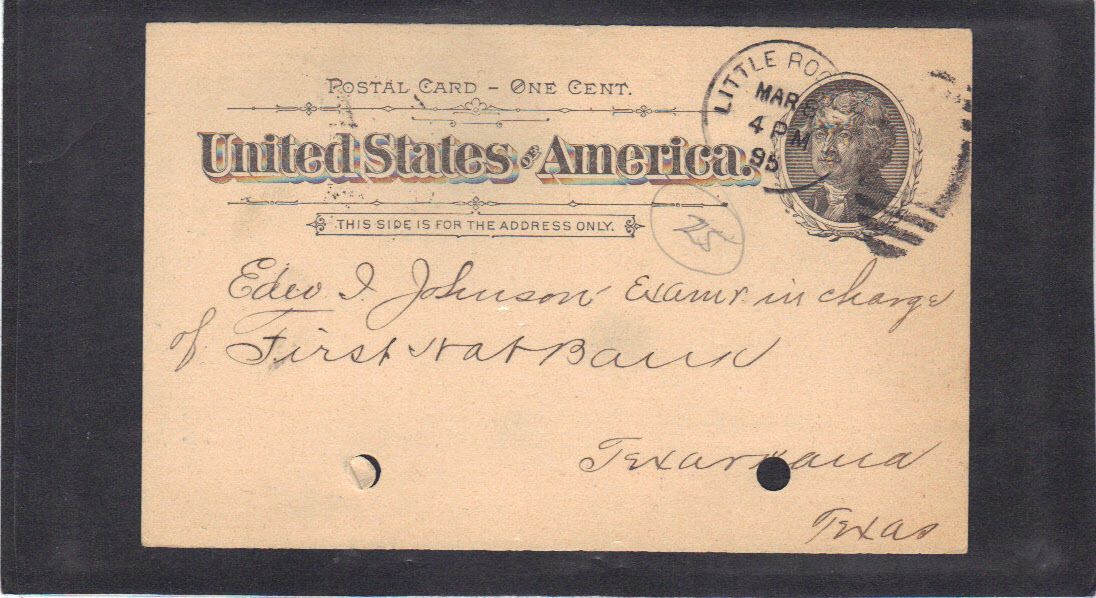 POSTAL CARD – ONE CENT.
United States OF America.
THIS SIDE IS FOR THE ADDRESS ONLY.
LITTLE ROC
MAR 8
4 PM
95
25
Edw. I. Johnson Examr. in charge
of First Nat Bank
Texarkana
Texas